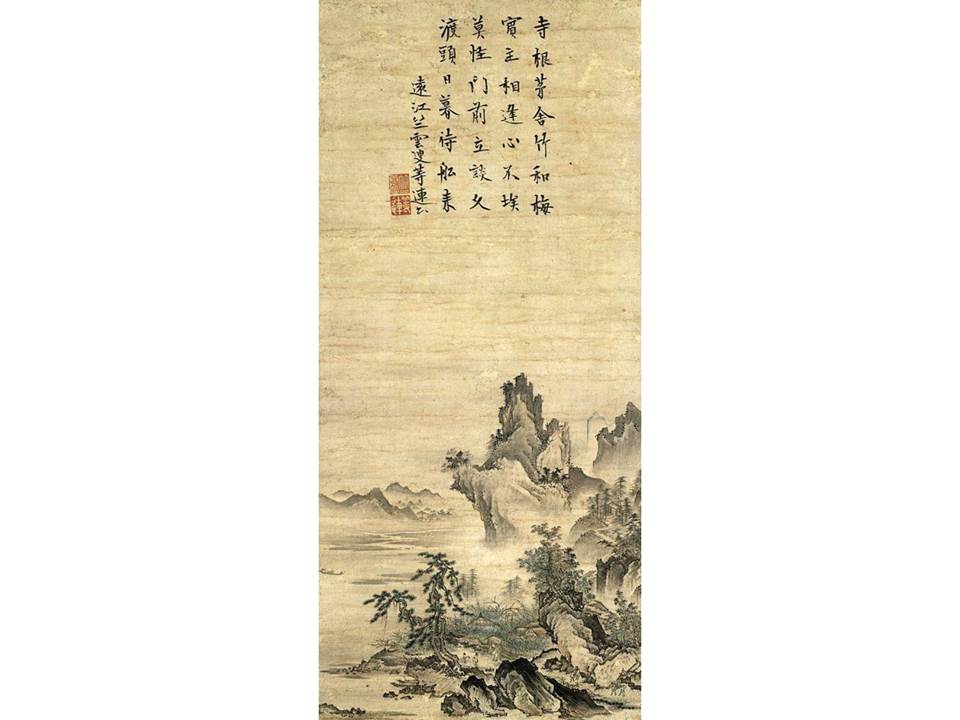 寺根茅舎竹和梅
賓主相逢心不埃
莫怪門前立談久
渡頭日暮待舩来
遠江竺雲叟等連書